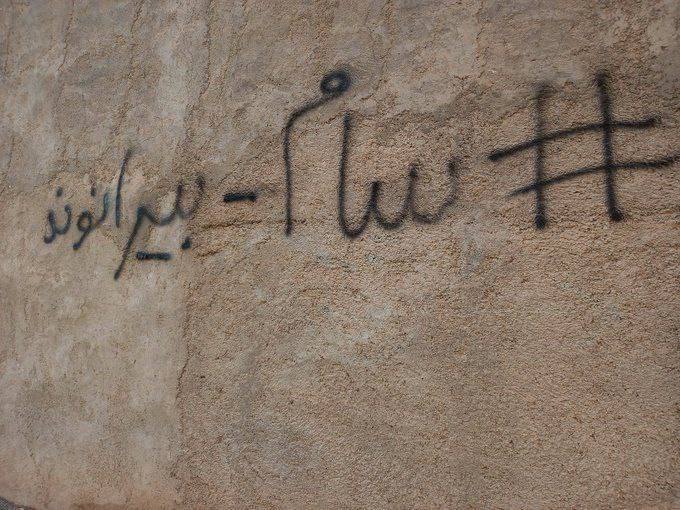 #سام-بیرانوند